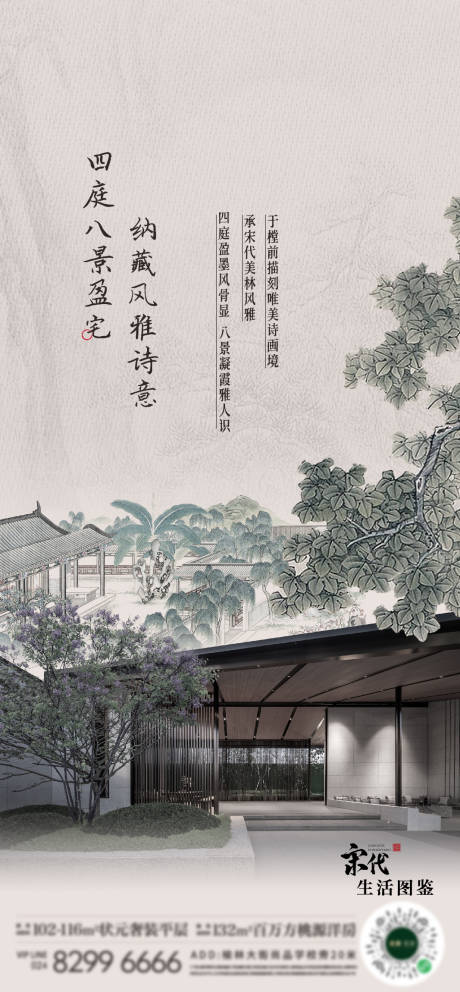 四庭八景盈宅
纳藏风雅诗意
于樘前描刻唯美诗画境
承宋代美林风雅
四庭盈墨风骨显 八景凝霞雅人识
宋代
生活图鉴
102-116m²状元奢装平层
132m²百万方桃源洋房
VIP LINE
024 8299 6666
ADD:榆林大街尚品学校旁20米